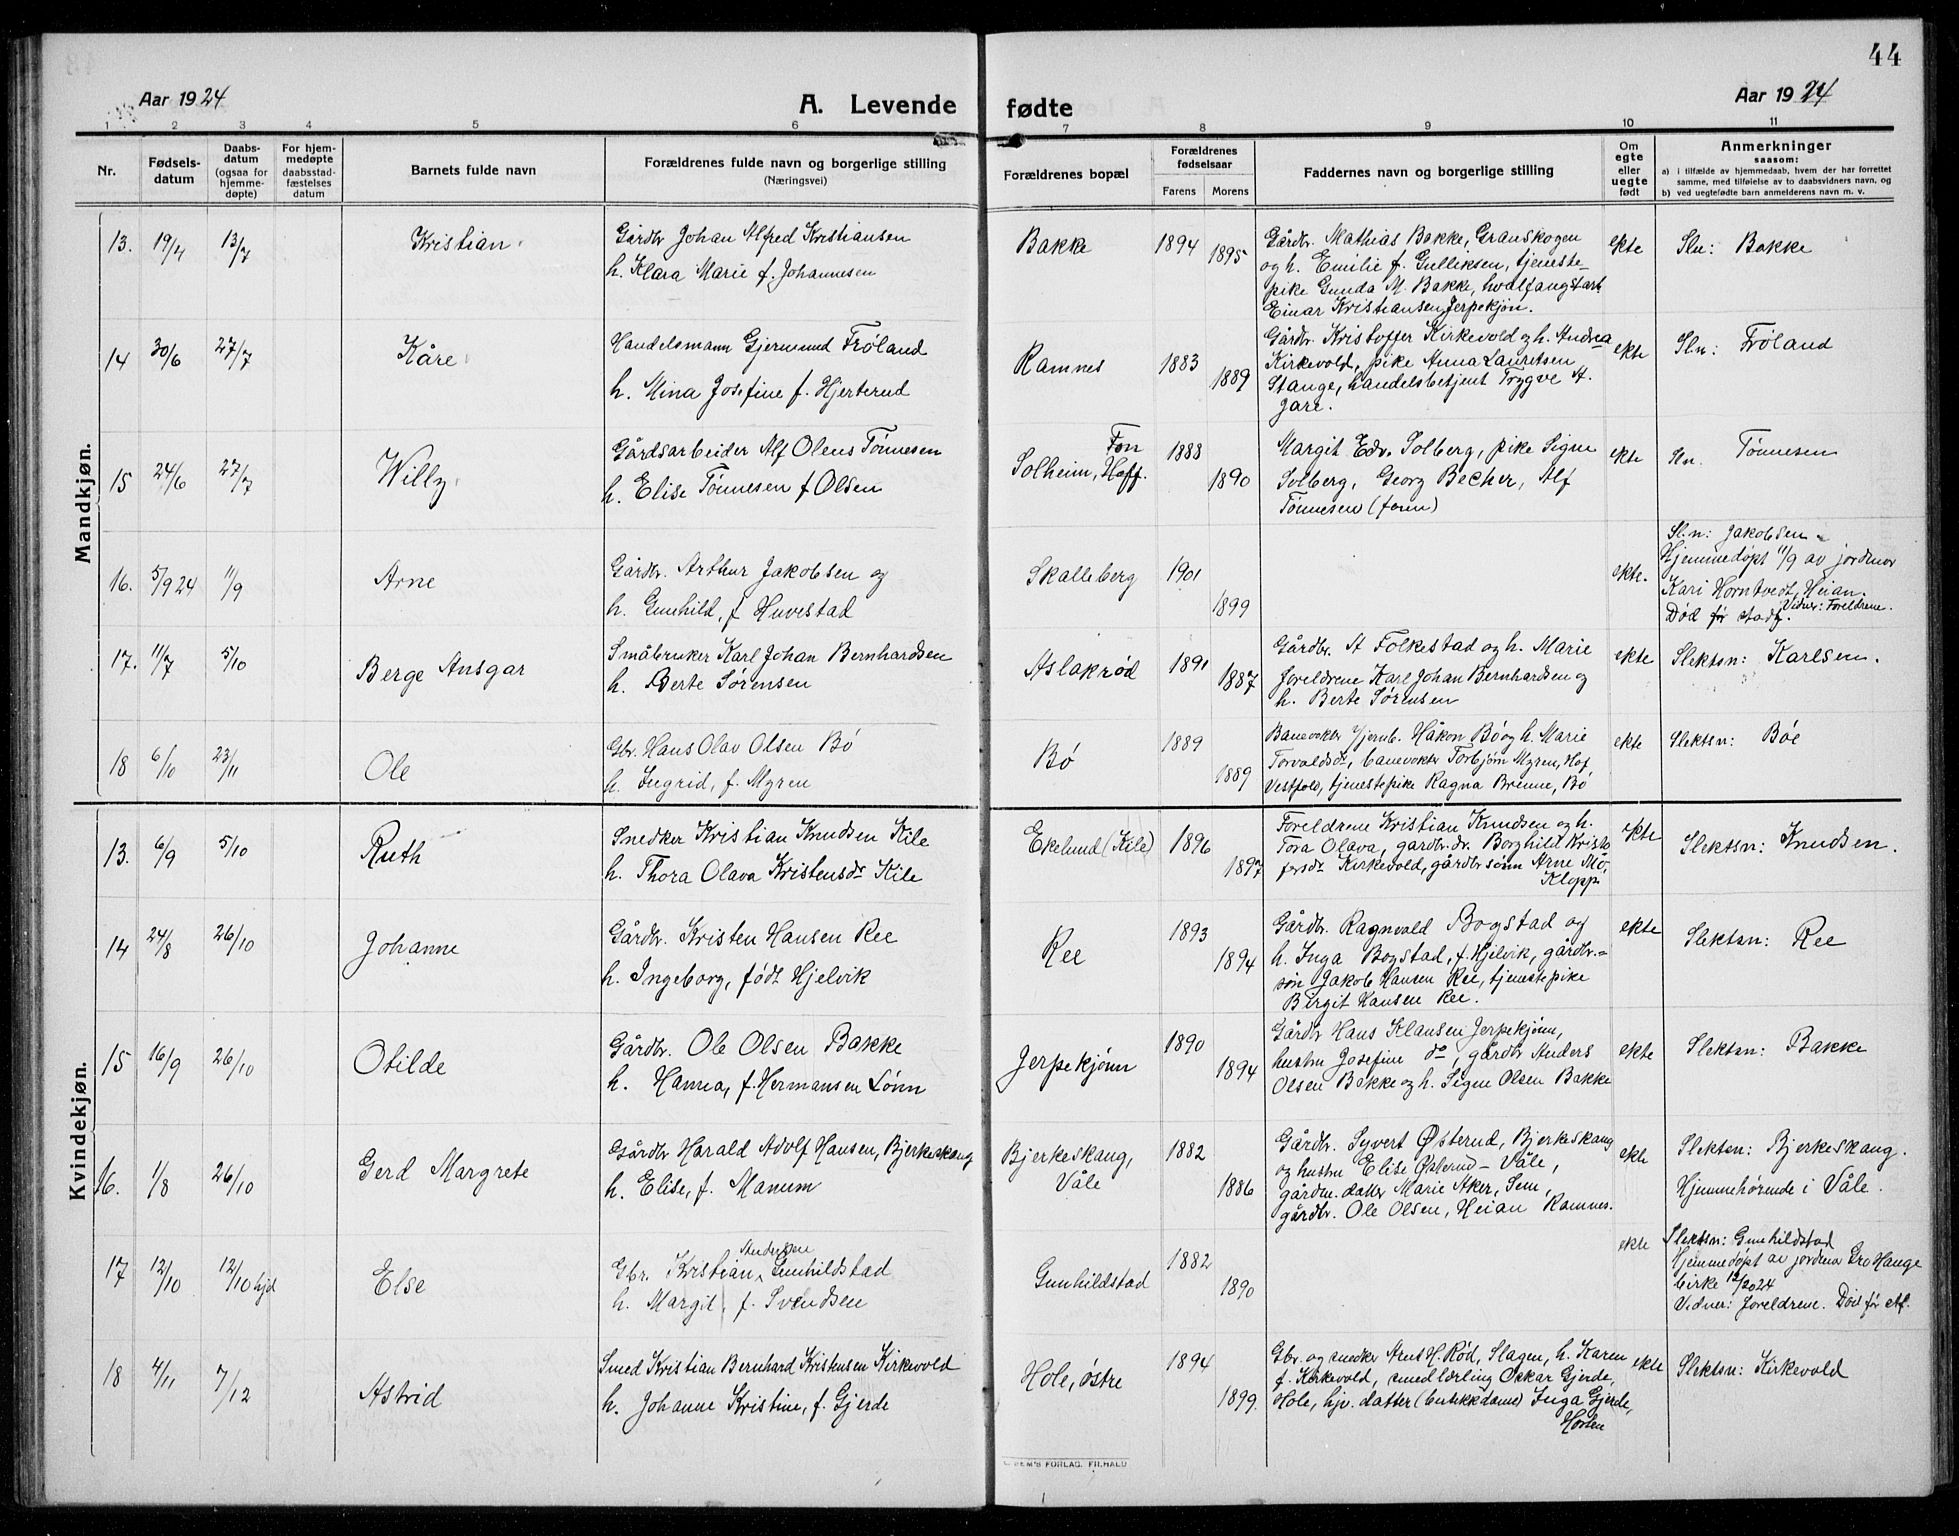 44
Aar 1924
A. Levende fødte
Aar 1924
1 2 3 4 5 6 7 8 9 10 11
Nr.
Fødsels-
datum
Daabs-
datum
(ogsaa for
hjemme-
døpte)
For hjem-
medøpte
daabsstad-
fæstelses
datum
Barnets fulde navn
Forældrenes fulde navn og borgerlige stilling
(Næringsvei)
Forældrenes bopæl
Forældrenes
fødselsaar
Farens Morens
Faddernes navn og borgerlige stilling
Om
egte
eller
uegte
født
Anmerkninger
saasom:
a) i tilfælde av hjemmedaab, hvem der har forrettet
samme, med tilføielse av to daabsvidners navn, og
b) ved uegtefødte barn anmelderens navn m. v.
Mandkjøn.
13. 19/4 13/7 Kristian
Gårdbr Johan Alfred Kristiansen
h. Klara Marie f. Johannesen
Bakke 1894 1895
Gårdbr. Mathias Bakke, Granskogen
og h. Emilie f. Gulliksen, tjeneste-
pike Gunda M. Bakke, hvalfangstarb.
Einar Kristiansen Jerpekjøn.
ekte
Sln: Bakke
14 30/6 27/7 Kåre
Handelsmann Gjermund Frøland
h. Mina Josefine f. Hjerterud
Ramnes 1883 1889
Gårdbr. Kristoffer Kirkevold og h. Andrea
Kirkevold, pike Anna Lauritsen
Stange, handelsbetjent Trygve A.
Jare.
ekte
Sln: Frøland
15 24/6 27/7 Willy
Gårdsarbeider Alf Olens Tønnesen
h. Elise Tønnesen f Olsen
Fon
Solheim, Hoff. 1888 1890
Margit Edv. Solberg, pike Signe
Solberg, Georg Becher, Alf
Tønnesen (faren)
ekte
Sln. Tønnesen
16. 5/9 24 11/9 Arne
Gårdbr. Arthur Jakobsen og
h. Gunhild, f Huvestad
Skalleberg 1901 1899
ekte.
Sl.n: Jakobsen
Hjemmedøpt 11/9 av jordmor
Kari Horntvedt, Heian.
Vidner: Foreldrene.
Død før stadf.
17. 11/7 5/10 Berge Ansgar
Småbruker Karl Johan Bernhardsen
h. Berte Sørensen
Aslakrød 1891 1887
Gårdbr. A Folkestad og h. Marie
foreldrene Karl Johan Bernhardsen og
h. Berte Sørensen
ekte
Slektsn: Karlsen.
18 6/10 23/11 Ole
Gbr. Hans Olav Olsen Bö
h. Ingrid, f. Myren
Bö 1889 1889
Banevokter v/jernb. Håkon Bö og h. Marie
Torvaldsdr, banevokter Torbjørn Myren, Hof
Vestfold, tjenestepike Ragna Brenne, Bö
ekte
Slektsn: Böe
Kvindekjøn.
13. 6/9 5/10 Ruth
Snedker Kristian Knudsen Kile
h. Thora Olava Kristensdr Kile
Ekelund (Kile) 1896 1897
Foreldrene Kristian Knudsen og h.
Tora Olava, gårdbr. dr. Borghild Kristo
fersdr Kirkevold, gårdbr sønn Arne Mö,
Klopp
ekte
Slektsn: Knudsen.
14 24/8 26/10 Johanne
Gårdbr. Kristen Hansen Ree
h. Ingeborg, født Hjelvik
Ree 1893 1894
Gårdbr. Ragnvald Bogstad og
h. Inga Bogstad, f. Hjelvik, gårdbr.=
søn Jakob Hansen Ree, tjenestepike
Birgit Hansen Ree.
ekte
Slektsn: Ree
15 16/9 26/10 Otilde
Gårdbr. Ole Olsen Bakke
h. Hanna, f. Hermansen Lønn
Jerpekjønn 1890 1894
Gårdbr Hans Klausen Jerpekjønn,
hustru Josefine do, gårdbr Anders
Olsen Bakke og h. Signe Olsen Bakke
ekte
Slektsn: Bakke
16. 1/8 26/10 Gerd Margrete
Gårdbr Harald Adolf Hansen, Bjerkeskang
h. Elise, f. Manum
Bjerkeskang,
Våle 1882 1886
Gårdbr. Syvert Østerud, Bjerkeskang
og hustru Elise Østerud - Våle,
gårdm. datter Marie Aker, Sem,
gårdbr. Ole Olsen, Heian Ramnes.
ekte
Slektsn: Bjerkeskang.
Hjemmehørende i Våle.
17 12/10 12/10 hjd Else
Andersen
Gbr. Kristian Gunhildstad
h. Margit, f. Svendsen
Gunhildstad 1882 1890
ekte
Slektsn: Gunhildstad
Hjemmedøpt av jordmor Gro Hauge
birke 12/10 24
Vidner: Foreldrene. Död før stf.
18 4/11 7/12 Astrid
Smed Kristian Bernhard Kristensen Kirkevold
h. Johanne Kristine, f. Gjerde
Hole, østre 1894 1899.
Gbr. og snedker Arnt H. Rød, Slagen, h. Karen
f. Kirkevold, smedlærling Oskar Gjerde,
Hole, hjv. datter (butikkdame) Inga Gjerde,
Horten
ekte
Slektsn: Kirkevold
FORLAG. FR.HALD